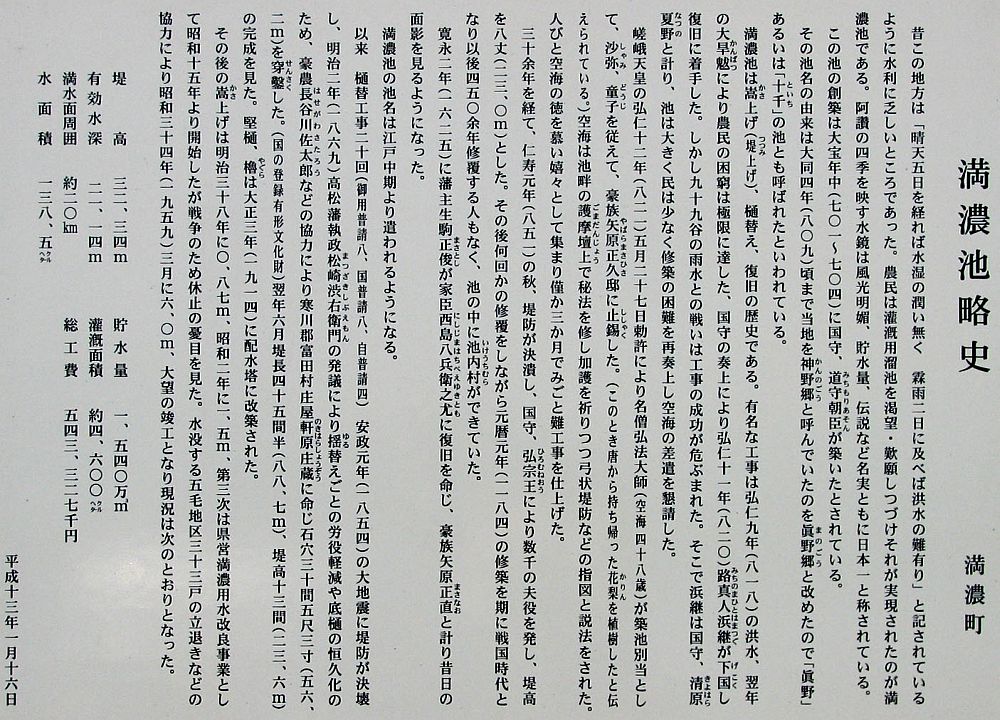 満濃池略史　満濃町
昔この地方は「晴天五日を経れば水湿の潤い無く　霖雨二日に及べば洪水の難有り」と記されている
ように水利に乏しいところであった。農民は灌漑用溜池を渇望・歎願しつづけそれが実現されたのが満
濃池である。阿讃の四季を映す水鏡は風光明媚、貯水量、伝説など名実ともに日本一と称されている。
この池の創築は大宝年中（七〇一〜七〇四）に国守、道守朝臣が築いたとされている。
その池名の由来は大同四年（八〇九）頃まで当地を神野郷と呼んでいたのを眞野郷と改めたので「眞野」
あるいは「十千」の池とも呼ばれたといわれている。
満濃池は嵩上げ（堤上げ）、樋替え、復旧の歴史である。有名な工事は弘仁九年（八一八）の洪水、翌年
の大旱魃により農民の困窮は極限に達した、国守の奏上により弘仁十一年（八二〇）路真人浜継が下国し
復旧に着手した。しかし九十九谷の雨水との戦いは工事の成功が危ぶまれた。そこで浜継は国守、清原
夏野と計り、池は大きく民は少なく修築の困難を再奏上し空海の差遣を懇請した。
嵯峨天皇の弘仁十二年（八二一）五月二十七日勅許により名僧弘法大師（空海四十八歳）が築池別当とし
て、沙弥、童子を従えて、豪族矢原正久邸に止錫した。（このとき唐から持ち帰った花梨を植樹したと伝
えられている。）空海は池畔の護摩壇上で秘法を修し加護を祈りつつ弓状堤防などの指図と説法をされた。
人びと空海の徳を慕い嬉々として集まり僅か三か月でみごと難工事を仕上げた。
三十余年を経て、仁寿元年（八五一）の秋、堤防が決潰し、国守、弘宗王により数千の夫役を発し、堤高
を八丈（二三、〇m）とした。その後何回かの修覆をしながら元暦元年（一一八四）の修築を期に戦国時代と
なり以後四五〇余年修覆する人もなく、池の中に池内村ができていた。
寛永二年（一六二五）に藩主生駒正俊が家臣西島八兵衛之尤に復旧を命じ、豪族矢原正直と計り昔日の
面影を見るようになった。
満濃池の池名は江戸中期より遣われるようになる。
以来　樋替工事二十回（御用普請八、国普請八、自普請四）安政元年（一八五四）の大地震に堤防が決壊
し、明治二年（一八六九）高松藩執政松崎渋右衛門の発議により揺替えごとの労役軽減や底樋の恒久化の
ため、豪農長谷川佐太郎などの協力により寒川郡富田村庄屋軒原庄蔵に命じ石穴三十間五尺三寸（五六、
二m）を穿鑿した。（国の登録有形文化財）翌年六月堤長四十五間半（八八、七m）、堤高十三間（二三、六m）
の完成を見た。堅樋、櫓は大正三年（一九一四）に配水塔に改築された。
その後の嵩上げは明治三十八年に〇、八七m、昭和二年に一、五m、第三次は県営満濃用水改良事業とし
て昭和十五年より開始したが戦争のため休止の憂目を見た。水没する五毛地区三十三戸の立退きなどの
協力により昭和三十四年（一九五九）三月に六、〇m、大望の竣工となり現況は次のとおりとなった。
堤高　三二、三四m　貯水量　一、五四〇万㎥
有効水深　二一、一四m　灌漑面積　約四、六〇〇ヘクタール
満水面周囲　約二〇㎞　総工費　五四三、三二七千円
水面積　一三八、五ヘクタール
平成十三年一月十六日